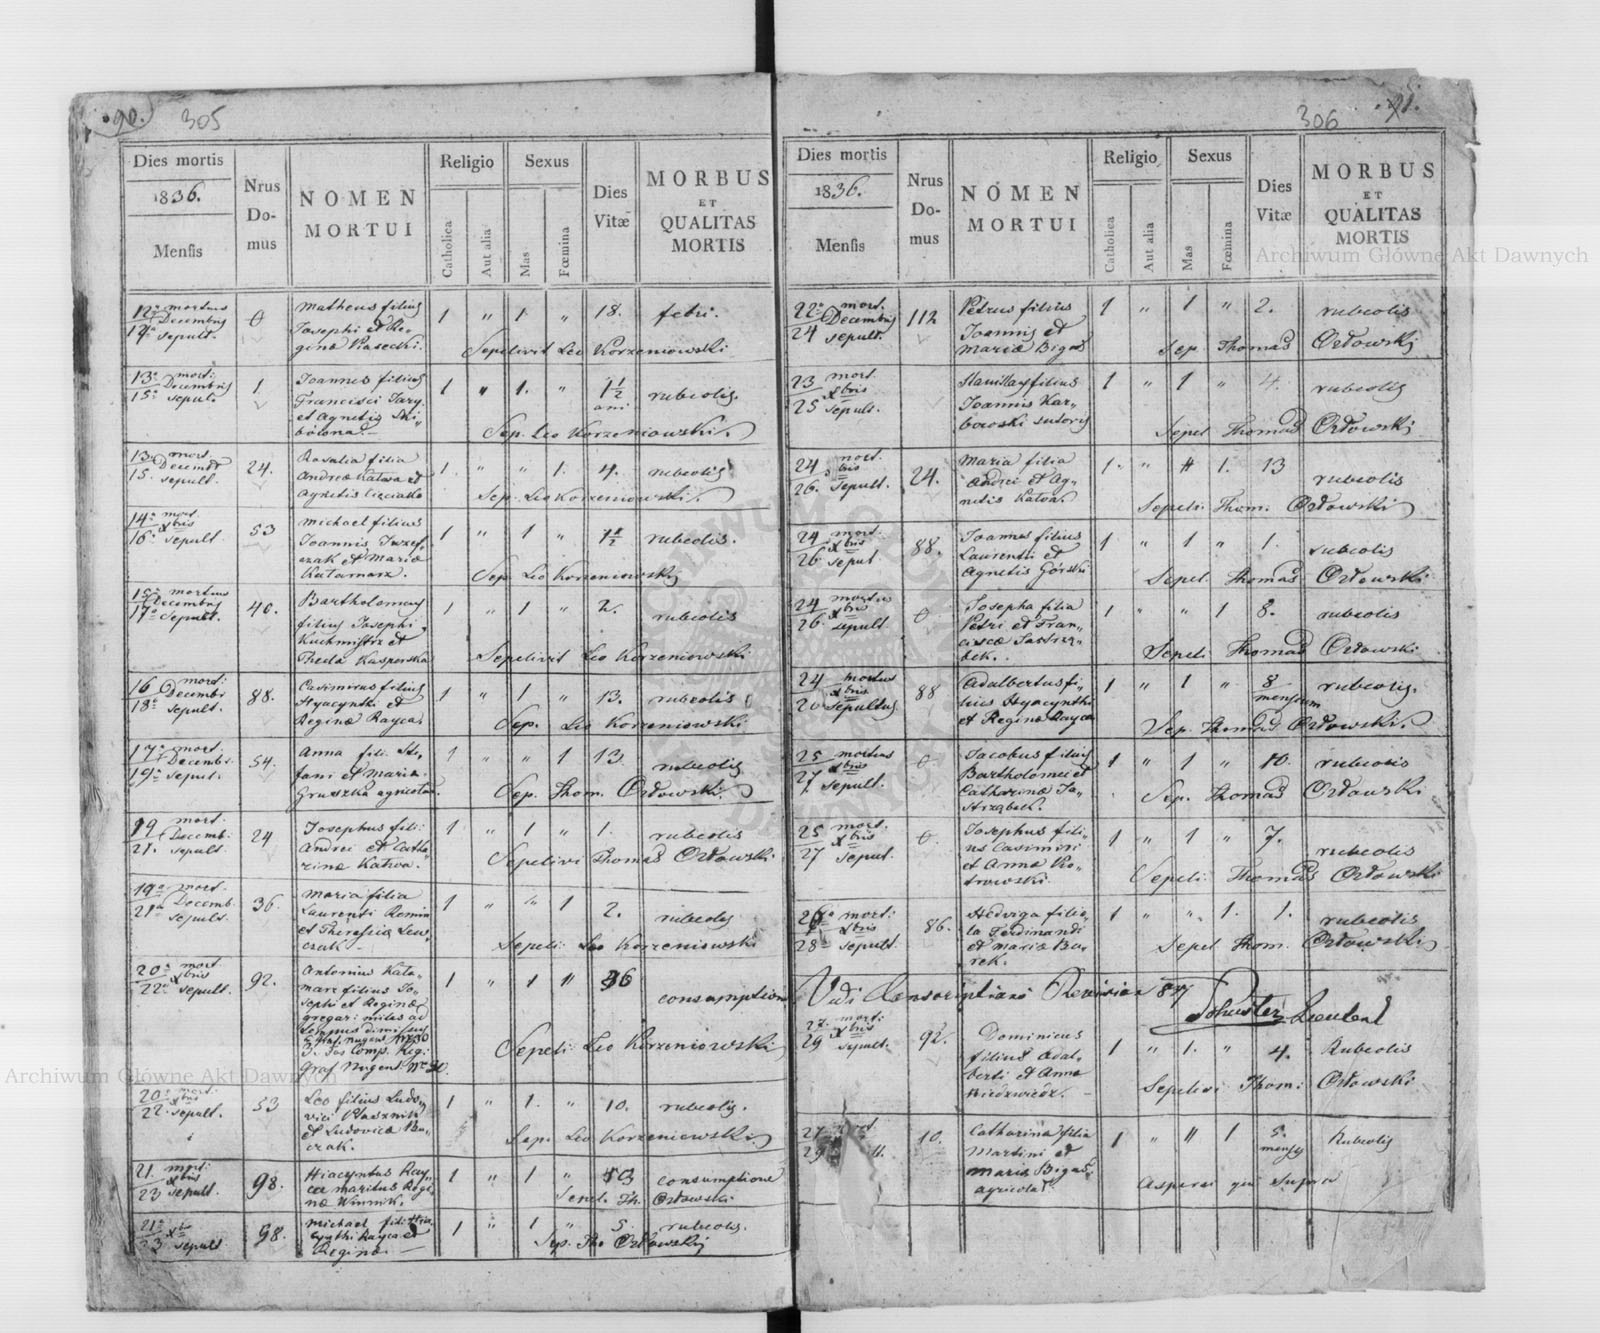 90. 305
Dies mortis
1836.
Mensis
Nrus
Do-
mus
NOMEN
MORTUI
Religio
Catholica
Aut alia
Sexus
Mas
Fœmina
Dies
Vitæ
MORBUS
ET
QUALITAS
MORTIS
12a mortuus
Decembris
14a sepult.
0
Matheus filius
Josephi et Re-
ginæ Piasecki.
1 " 1 " 18. febri.
Sepelivit Leo Korzeniowski
13a mort:
Decembris
15a sepult.
1
Joannes filius
Francisci
et Agnetis
1 " 1. " 1 1/2
ani
rubeolis.
Sep. Leo Korzeniowski.
13a mort.
Decembr
15. sepult.
24.
Rosalia filia
Andreæ Katwa et
Agnetis
1. " " 1. 4. rubeolis
Sep. Leo Korzeniowski.
14a mort.
Xbris
16a sepult.
53
Michael filius
Joannis Jozef-
czak et Mariæ
Katamarz.
1 " 1 " 1 1/2 rubeolis.
Sep. Leo Korzeniowski
15a mortuus
Decembris
17a Sepult.
40.
Bartholomeus
filius Josephi
Kuchmistrz et
Theclæ Kasperska
1 " 1 " 2. rubeolis
Sepelivit Leo Korzeniowski
16 mort:
Decembr
18a sepult.
88.
Casimirus filius
Hyacynthi et
Reginæ Rayca
1 " 1 " 13. rubeolis
Sep. Leo Korzeniowski
17a mort:
Decembr.
19a sepult.
54.
Anna fili. Ste-
fani et Maria
Gruszka agricolar.
1 " " 1 13. rubeolis
Sep. Thom. Ordowski.
19 mort.
Decemb:
21. sepult.
24
Josephus fili:
Andrei et Catha-
rinæ Katwa.
1 " 1 " 1. rubeolis
Sepelivi Thomas Ordowski
19a mort.
Decemb.
21a sepult.
36.
Maria filia
Laurenti
et Theresiæ Lew-
czuk
1 " " 1 2. rubeolis
Sepeli: Leo Korzeniowski
20a mort
Xbris
22a sepult.
92.
Antonius Kata-
marz filius Jo-
sephi et Reginæ
gregar: miles ad
tempus dimissus
Comp. Reg:
Graf Nugent Nro 30.
1 " 1 " 36 consumptione
Sepeli: Leo Korzeniowski
20a mort.
Xbris
22. sepult.
53
Leo filius Ludo-
vici
et Ludovicæ
1 " 1. " 10. rubeolis.
Sep. Leo Korzeniewski
21. mort:
Xbris
23 sepult.
98.
Hiacyntus Ray-
ca maritus Regi-
næ Winnik.
1 " 1 " 43 consumptione
Sepel. Th. Ordowski
21a
Xbr
23 sepult
98.
Michael fili: Hia-
cynthi Rayca et
Reginæ.
1 " 1 " 5. rubeolis.
Sep. Tho Ordowski
306 91.
Dies mortis
1836.
Mensis
Nrus
Do-
mus
NOMEN
MORTUI
Religio
Catholica
Aut alia
Sexus
Mas
Fœmina
Dies
Vitæ
MORBUS
ET
QUALITAS
MORTIS
22a mort.
Decembris
24 sepult.
112
Petrus filius
Joannis et
Mariæ Bigas
1 " 1 " 2. rubeolis
Sep. Thomas Ordowski
23 mort
Xbris
25 sepult.
Stanislaus filius
Joannis Kar-
bowski sutoris
1 " 1 " 4. rubeolis
Sepel Thomas Ordowski
24 mort.
Xbris
26. sepult.
24.
Maria filia
Andrei et Ag-
netis Katwa.
1. " " 1. 13 rubeolis
Sepeli. Thom. Ordowski
24 mort.
Xbris
26 sepult
88.
Joannes filius
Laurentii et
Agnetis Górski
1 " 1 " 1. rubeolis
Sepel. Thomas Ordowski
24 mortus
Xbris
26. sepult
0
Josepha filia
Petri et Fran-
ciscæ Jastrzą-
bek.
1 " " 1 8. rubeolis
Sepeli Thomas Ordowski
24 mortus
Xbris
26 Sepultus
88
Adalbertus fi-
lius Hyacynthi
et Reginæ Rayca
1 " 1 " 8
mensium
rubeolis.
Sep. Thomas Ordowski.
25 mortuus
Xbris
27. sepult.
0
Jacobus filius
Bartholomei et
Catharinæ Ja-
strząbek.
1 " 1 " 10. rubeolis
Sep. Thomas Ordowski
25 mort.
Xbris
27 sepult.
0.
Josephus fili-
us Casimiri
et Annæ Pio-
trowski.
1 " 1 " 7. rubeolis
Sepeli: Thomas Ordowski
26a mort:
Xbris
28a sepult.
86.
Hedviga filio-
la Ferdinandi
et Mariæ Bu-
rek.
1 " " 1. 1. rubeolis
Sepel Thom. Ordowski
Vidi Conscriptions Revision 837
Schuster Lieutent
27. mort:
Xbris
29 sepult.
92.
Dominicus
filius Adal-
berti et Annæ
Niedzwiedz.
1 " 1. " 4. Rubeolis
Sepelivi Thom: Ordowski
27 mort
29
10.
Catharina filia
Martini et
Mariæ Bigas
agricola
1 " " 1 5.
mensis
Rubeolis
Asperai qui supra
Archiwum Główne Akt Dawnych
Archiwum Główne Akt Dawnych